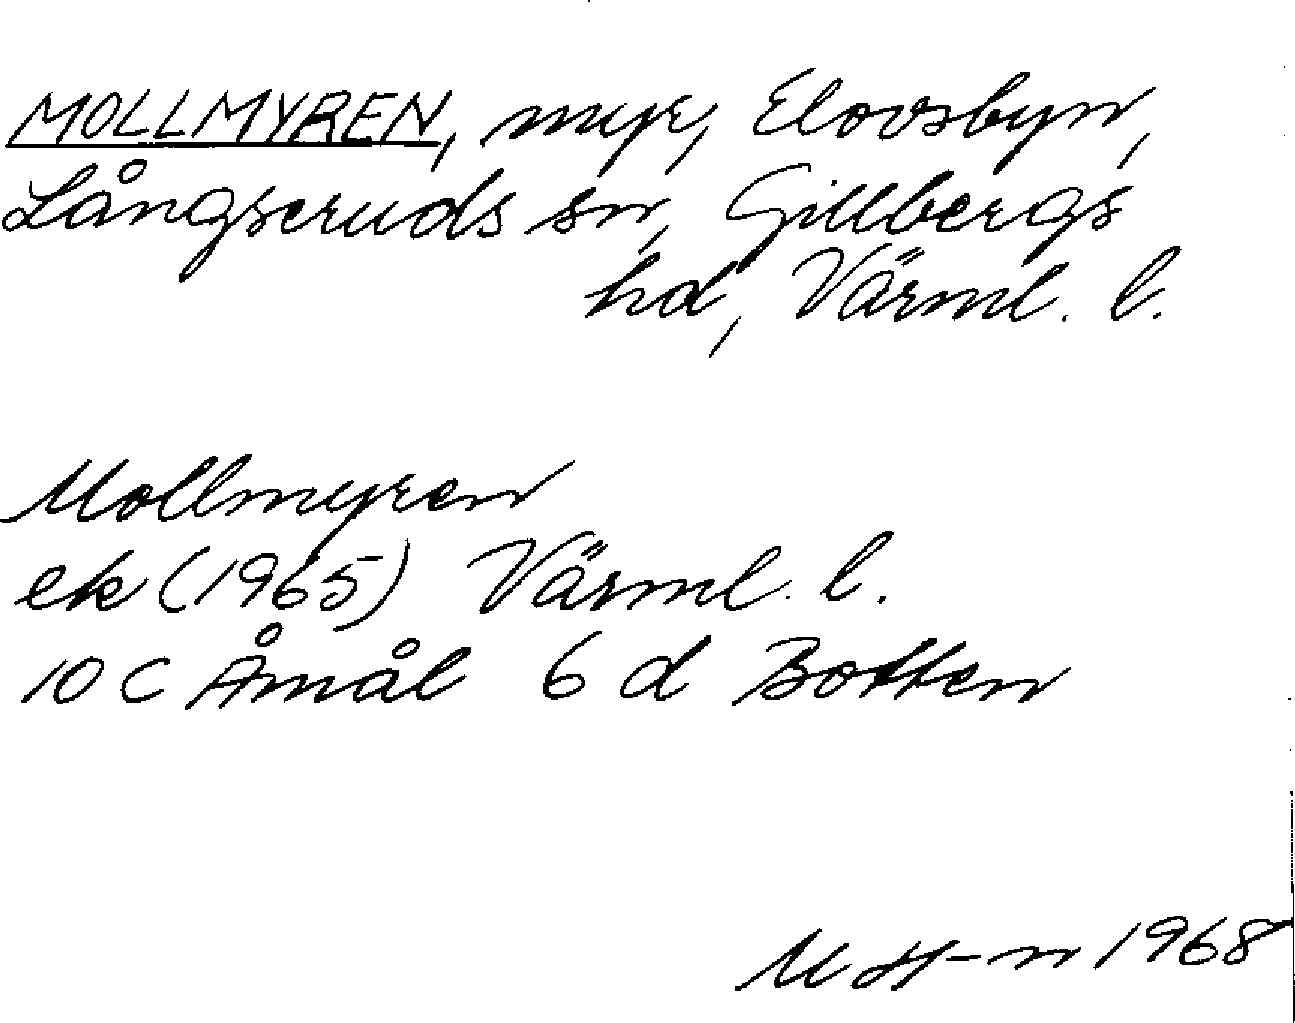 MOLLMYREN, myr, Elovsbyn,
Långseruds sn, Gillbergs
hd, Värml. l.
Mollmyren
ek (1965) Värml. l.
10 C Åmål 6 d Botten
M H-n 1968